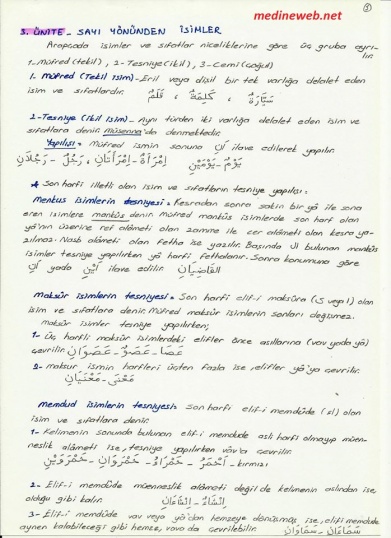 medineweb.net
3. ÜNİTE - SAYI YÖNÜNDEN İSİMLER
Arapcada isimler ve sıfatlar niceliklerine göre üç gruba ayrılır.
1-Müfred (tekil), 2-Tesniye (ikil), 3-Cemi (çoğul)
1. Müfred (Tekil İsim)- Eril veya dişil bir tek varlığa delalet eden
isim ve sıfatlardır. سَيَّارَةٌ ، كَلِمَةٌ ، قَلَمٌ
2-Tesniye (ikil İsim) - Aynı türden iki varlığa delalet eden isim ve
sıfatlara denir. Müsenna'da denmektedir.
Yapılışı: Müfred ismin sonuna اَنِ ilave edilerek yapılır.
يَوْمٌ - يَوْمَيْنِ اِمْرَأَةٌ - اِمْرَأَتَانِ، رَجُلٌ - رَجُلَانِ
* Son harfi illetli olan isim ve sıfatların tesniye yapılışı:
Menkus isimlerin tesniyesi = Kesradan sonra sakin bir yâ ile sona
eren isimlere mankûs denir Müfred mankûs isimlerde son harf olan
yâ'nın üzerine ref alâmeti olan zamme ile cer alâmeti olan kesra ya-
zılmaz. Nasb alâmeti olan fetha ise yazılır. Başında ال bulunan mankûs
isimler tesniye yapılırken yâ harfi fethalanır. Sonra konumuna göre
اَنِ yada اَيْنِ ilave edilir. اَلْقَاضِيَانِ
Maksûr isimlerin tesniyesi = Son harfi elif-i maksûra (ى veya ا) olan
isim ve sıfatlara denir. Müfred maksûr isimlerin sonları değişmez.
Maksûr isimler tesniye yapılırken;
1- Üç harfli maksûr isimlerdeki elifler önce asıllarına (vav yada yâ)
çevrilir عَصَا - عَصَوٌ - عَصَوَانِ
2- maksur ismin harfleri üçten fazla ise, elifler yâ'ya çevrilir.
مَعْنَى - مَعْنَيَانِ
Memdud isimlerin tesniyesi: Son harfi elif-i memdûde (اء) olan
isim ve sıfatlara denir.
1- Kelimenin sonunda bulunan elif-i memdude asli harfi olmayıp müen-
neslik alâmeti ise, tesniye yapılırken vâv'a çevrilir.
أَحْمَرُ - حَمْرَاءُ - حَمْرَوَانِ - حَمْرَوَيْنِ - kırmızı
2- Elif-i memdûde müenneslik alâmeti değil de kelimenin aslından ise
olduğu gibi kalır. إِنْشَاءٌ - إِنْشَاءَانِ
3- Elif-i memdûde vav veya yâ'dan hemzeye dönüşmüş ise, elifi memdude
aynen kalabileceği gibi hemze, vava da çevrilebilir. سَمَاءَانِ - سَمَاوَانِ